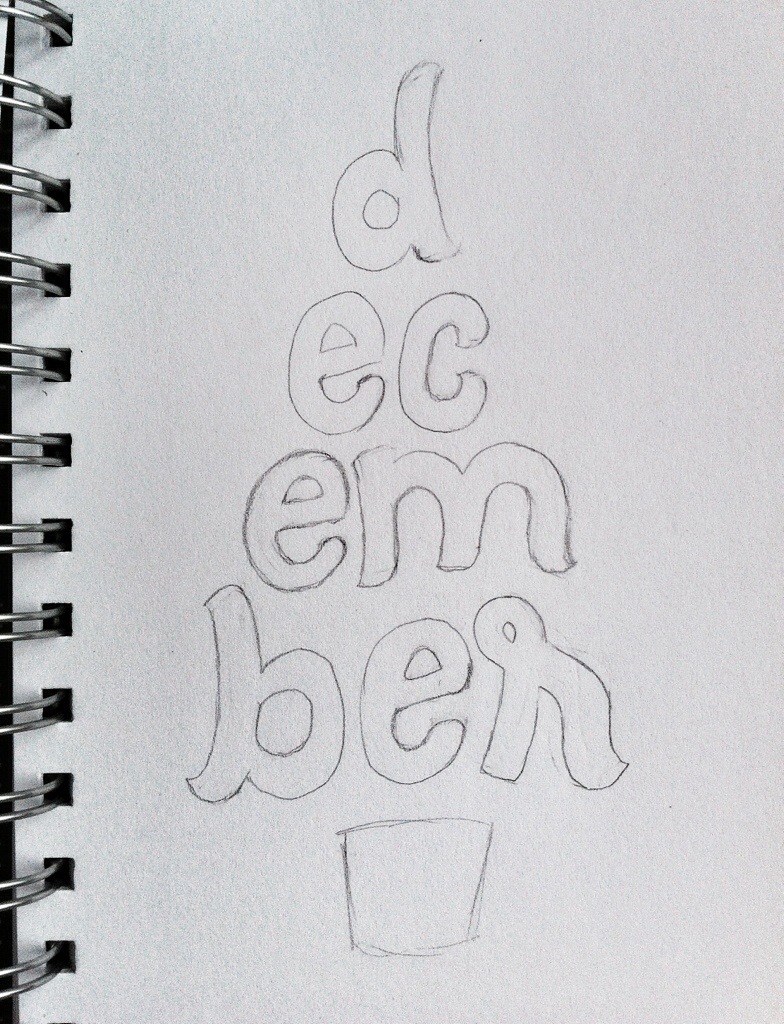 d
ec
em
ber